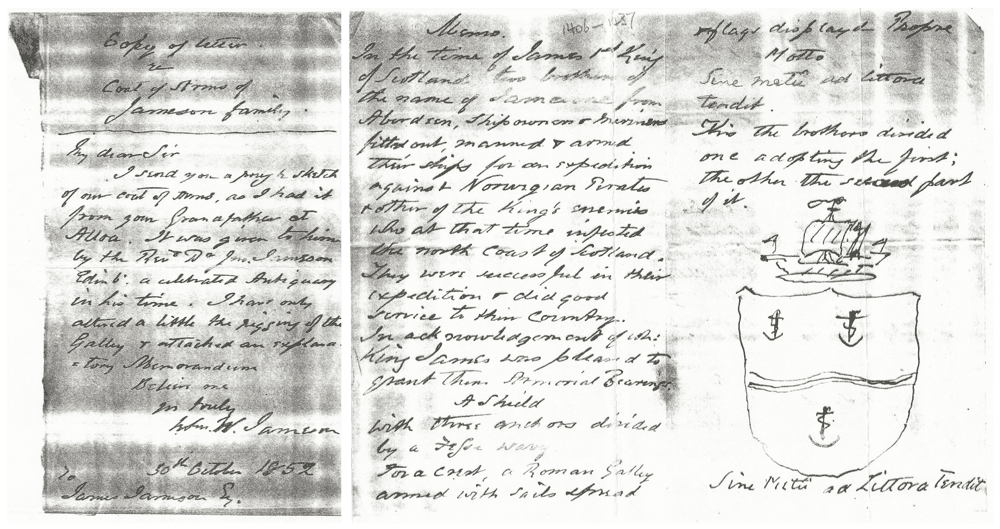 Copy of letter
&
Coat of Arms of
Jameson family
My dear Sir
I send you a rough sketch
of our coat of Arms, as I had it
from your Grandfather at
Alloa. It was given to him
by the Revd. Dr. Jno. Jameson
Edinb. a celebrated Antiquary
in his time. I have only
altered a little the rigging of the
Galley & attached an explana
=tory Memorandum
Believe me
yrs truly
W. Jameson
30th October 1852
To
James Jameson Esq.
Memo.
1406-1437
In the time of James 1st King
of Scotland two brothers of
the name of Jamesone from
Aberdeen, Shipowners & Mariners
fitted out, manned & armed
their ships for an expedition
against Norwegian Pirates
& other of the King's enemies
who at that time infested
the north coast of Scotland.
They were successful in their
expedition & did good
service to their Country.
In acknowledgement of wh:
King James was pleased to
grant them Armorial Bearings.
A Shield
with three anchors divided
by a Fesse wavy
For a crest, a Roman Galley
armed with sails spread
& flags displayed Propre
Motto
Sine metu ad littora
tendit.
This the brothers divided
one adopting the first;
the other the second part
of it.
Sine Metu ad Littora Tendit